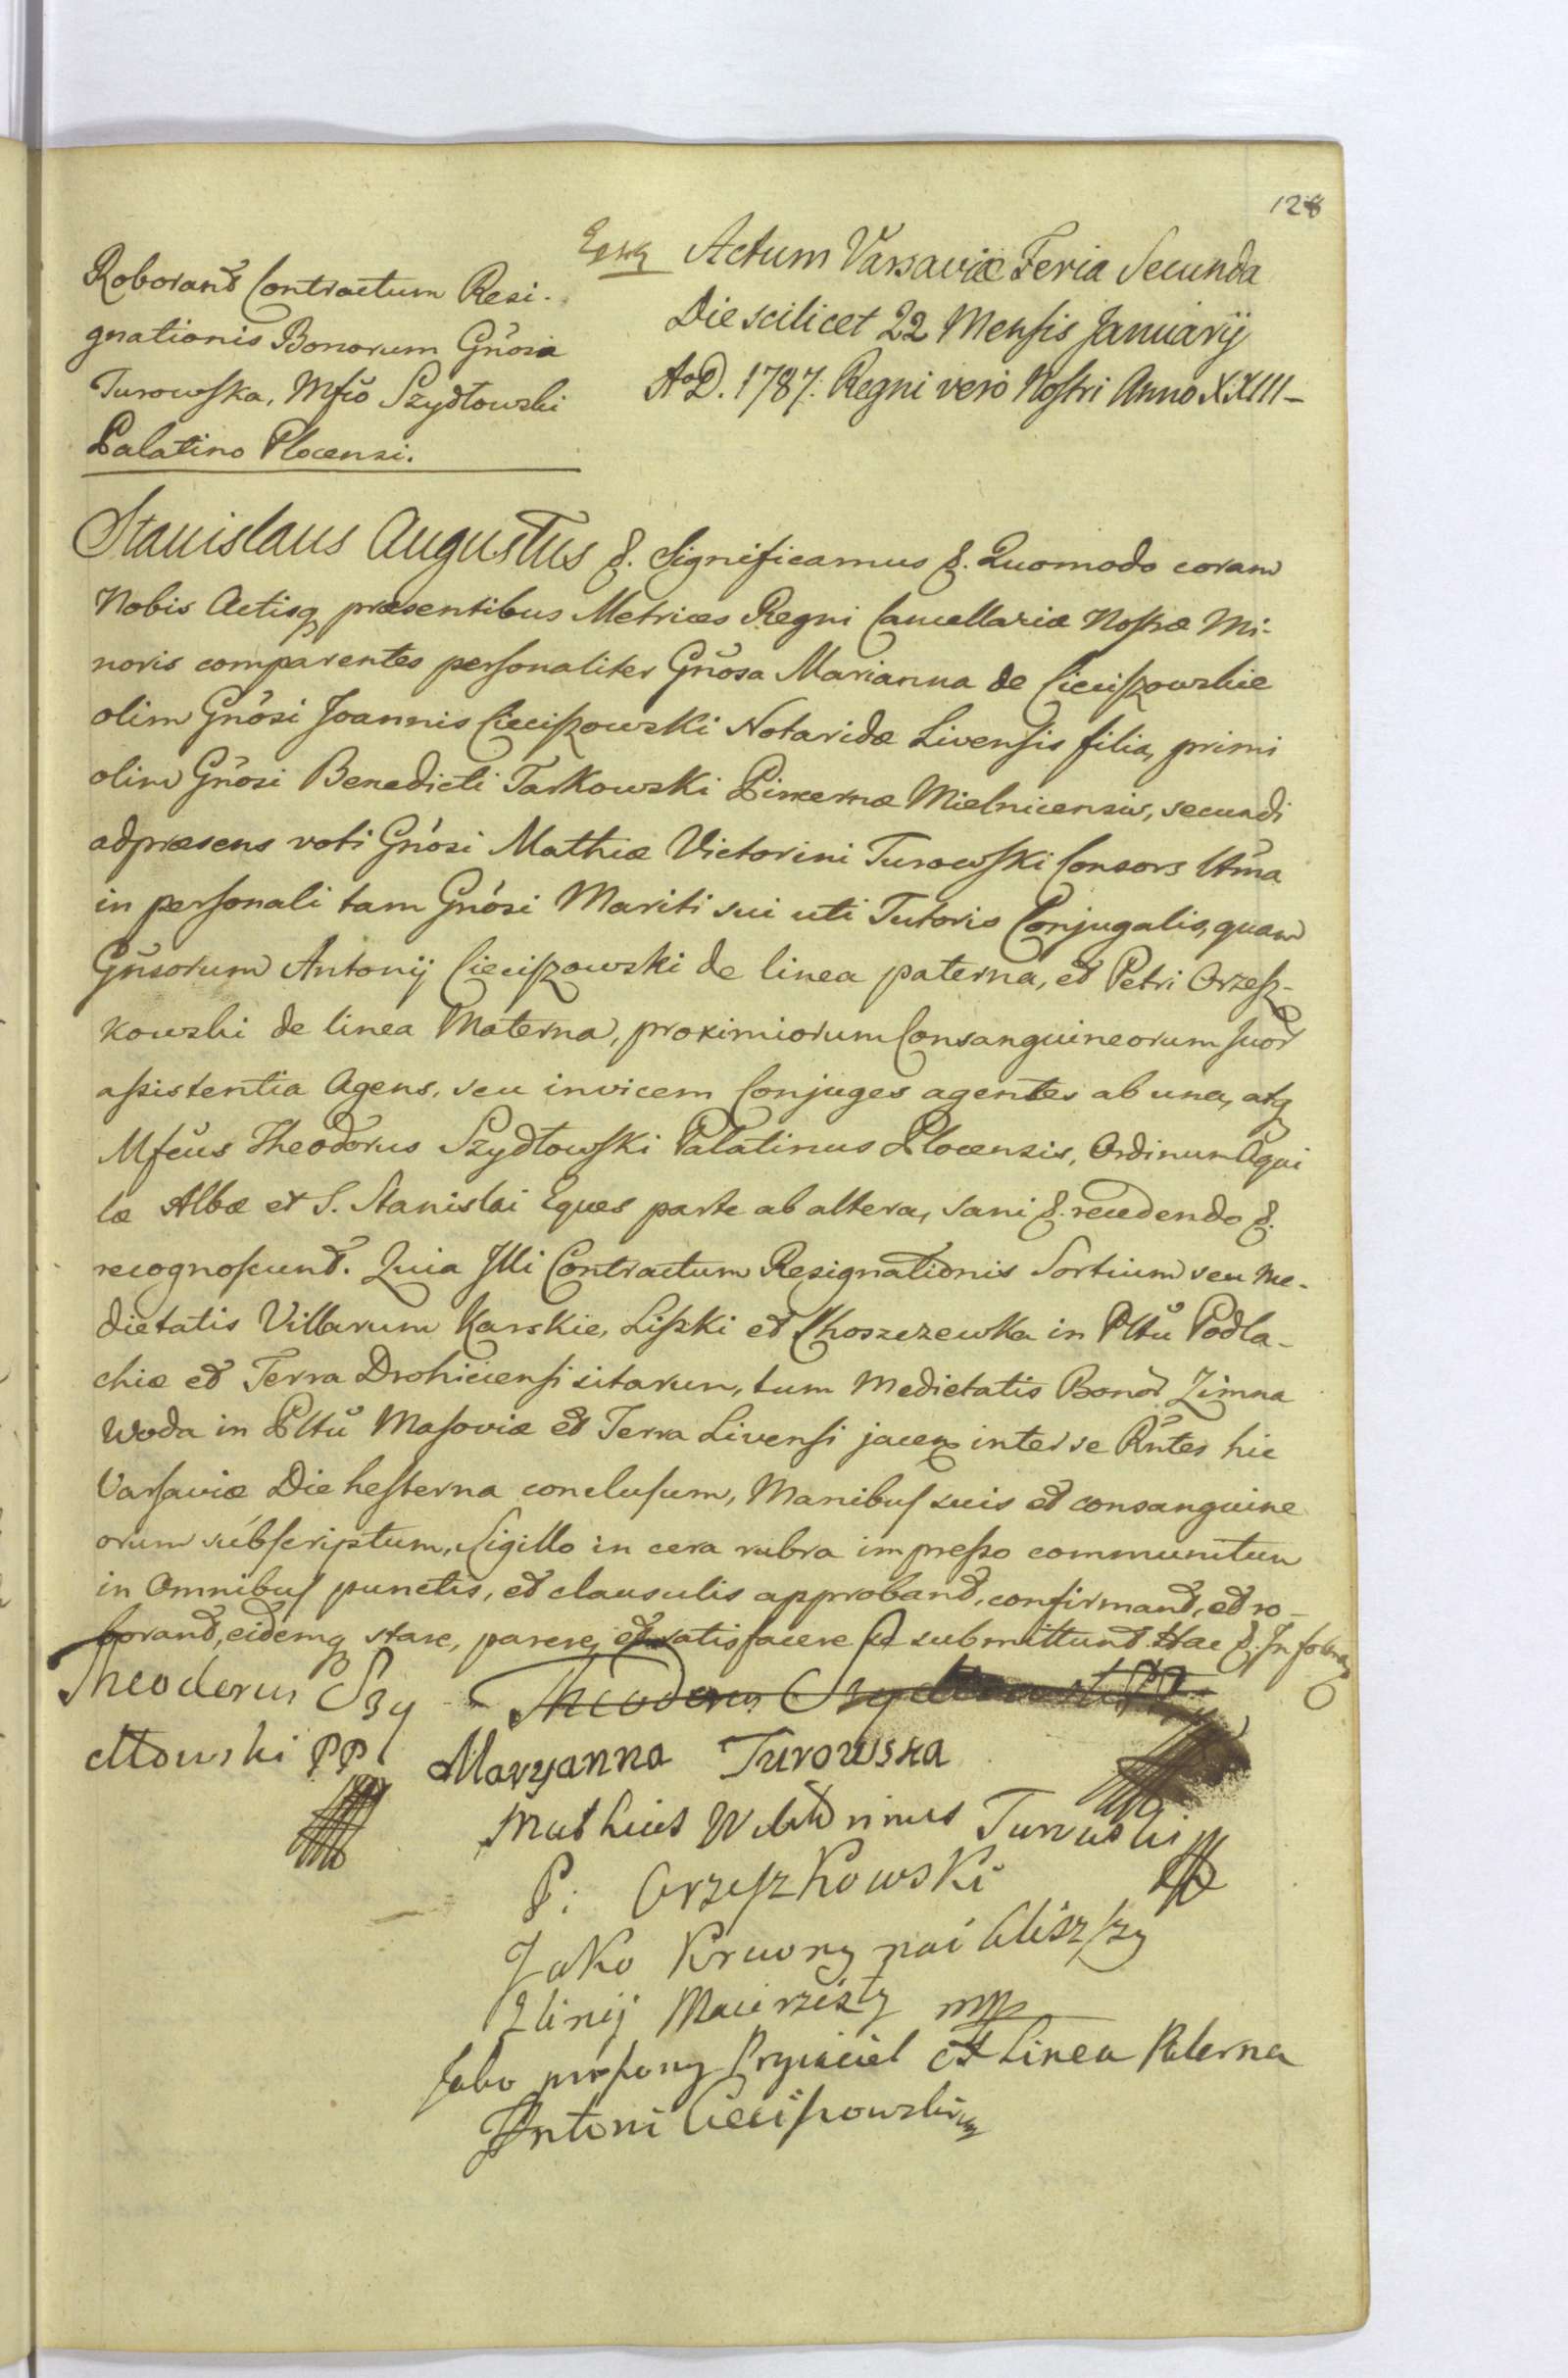 128
Roborant Contractum Resi-
gnationis Bonorum Gn̄osa
Turowſka, Mſco Szydłowski
Palatino Plocensi.
Actum Varsaviæ Feria Secunda
Die scilicet 22 Menſis Januarij
AoD. 1787. Regni vero Noſtri Anno XXIII_
Stanislaus Augustus &. Significamus &. Quomodo coram
Nobis Actisq præsentibus Metrices Regni Cancellariæ Noſtræ Mi-
noris comparentes perſonaliter Gn̄osa Marianna de Cieciſzowskie
olim Gn̄osi Joannis Cieciſzowski Notaridæ Livenſis filia, primi
olim Gn̄osi Benedicti Tarkowski Pincernæ Mielnicensis, secundi
adpræsens voti Gn̄osi Mathiæ Victorini Turowſki Consors Ltm̄a
in perſonali tam Gn̄osi Mariti sui uti Tutoris Conjugalis, quam
Gn̄sorum Antonij Cieciſzowski de linea paterna, et Petri Orzeſz-
kowski de linea Materna, proximiorum Consanguineorum ſuor
aſsistentia Agens, seu invicem Conjuges agentes ab una, atq
Mſcus Theodorus Szydłowſki Palatinus Plocensis, Ordinum Aqui
læ Albæ et S. Stanislai Eques parte ab altera, sani &. recedendo &.
recognoſcunt. Quia Illi Contractum Resignationis Sortium seu Me-
dietatis Villarum Karskie, Liſzki et Choszczewka in Pltū Podla-
chiæ et Terra Drohicienſi sitarum, tum Medietatis Bonor Zimna
Woda in Pltū Maſoviæ et Terra Livenſi jacen inter se Rn̄tes hic
Varſaviæ Die heſterna concluſum, Manibuſ suis et consanguine
orum subſcriptum, Sigillo in cera rubra impreſso communitum
in Omnibuſ punctis, et clausulis approbant, confirmant, et ro-
borant, eidemq stare, parere, et satisfacere se submittunt. Hac &. In
Theodorus Szy
Theodorus Szydłowski PP
dłowski PP
Maryanna Turowska
Mathias Wiktorinus Turowski
P: Orzeſzkowski
Jako Krewny nai bliszſzy
Z linij Macierzisty mp
Jako proſzony Pryiaciel et Linea Paterna
Antoni Cieciſzowski